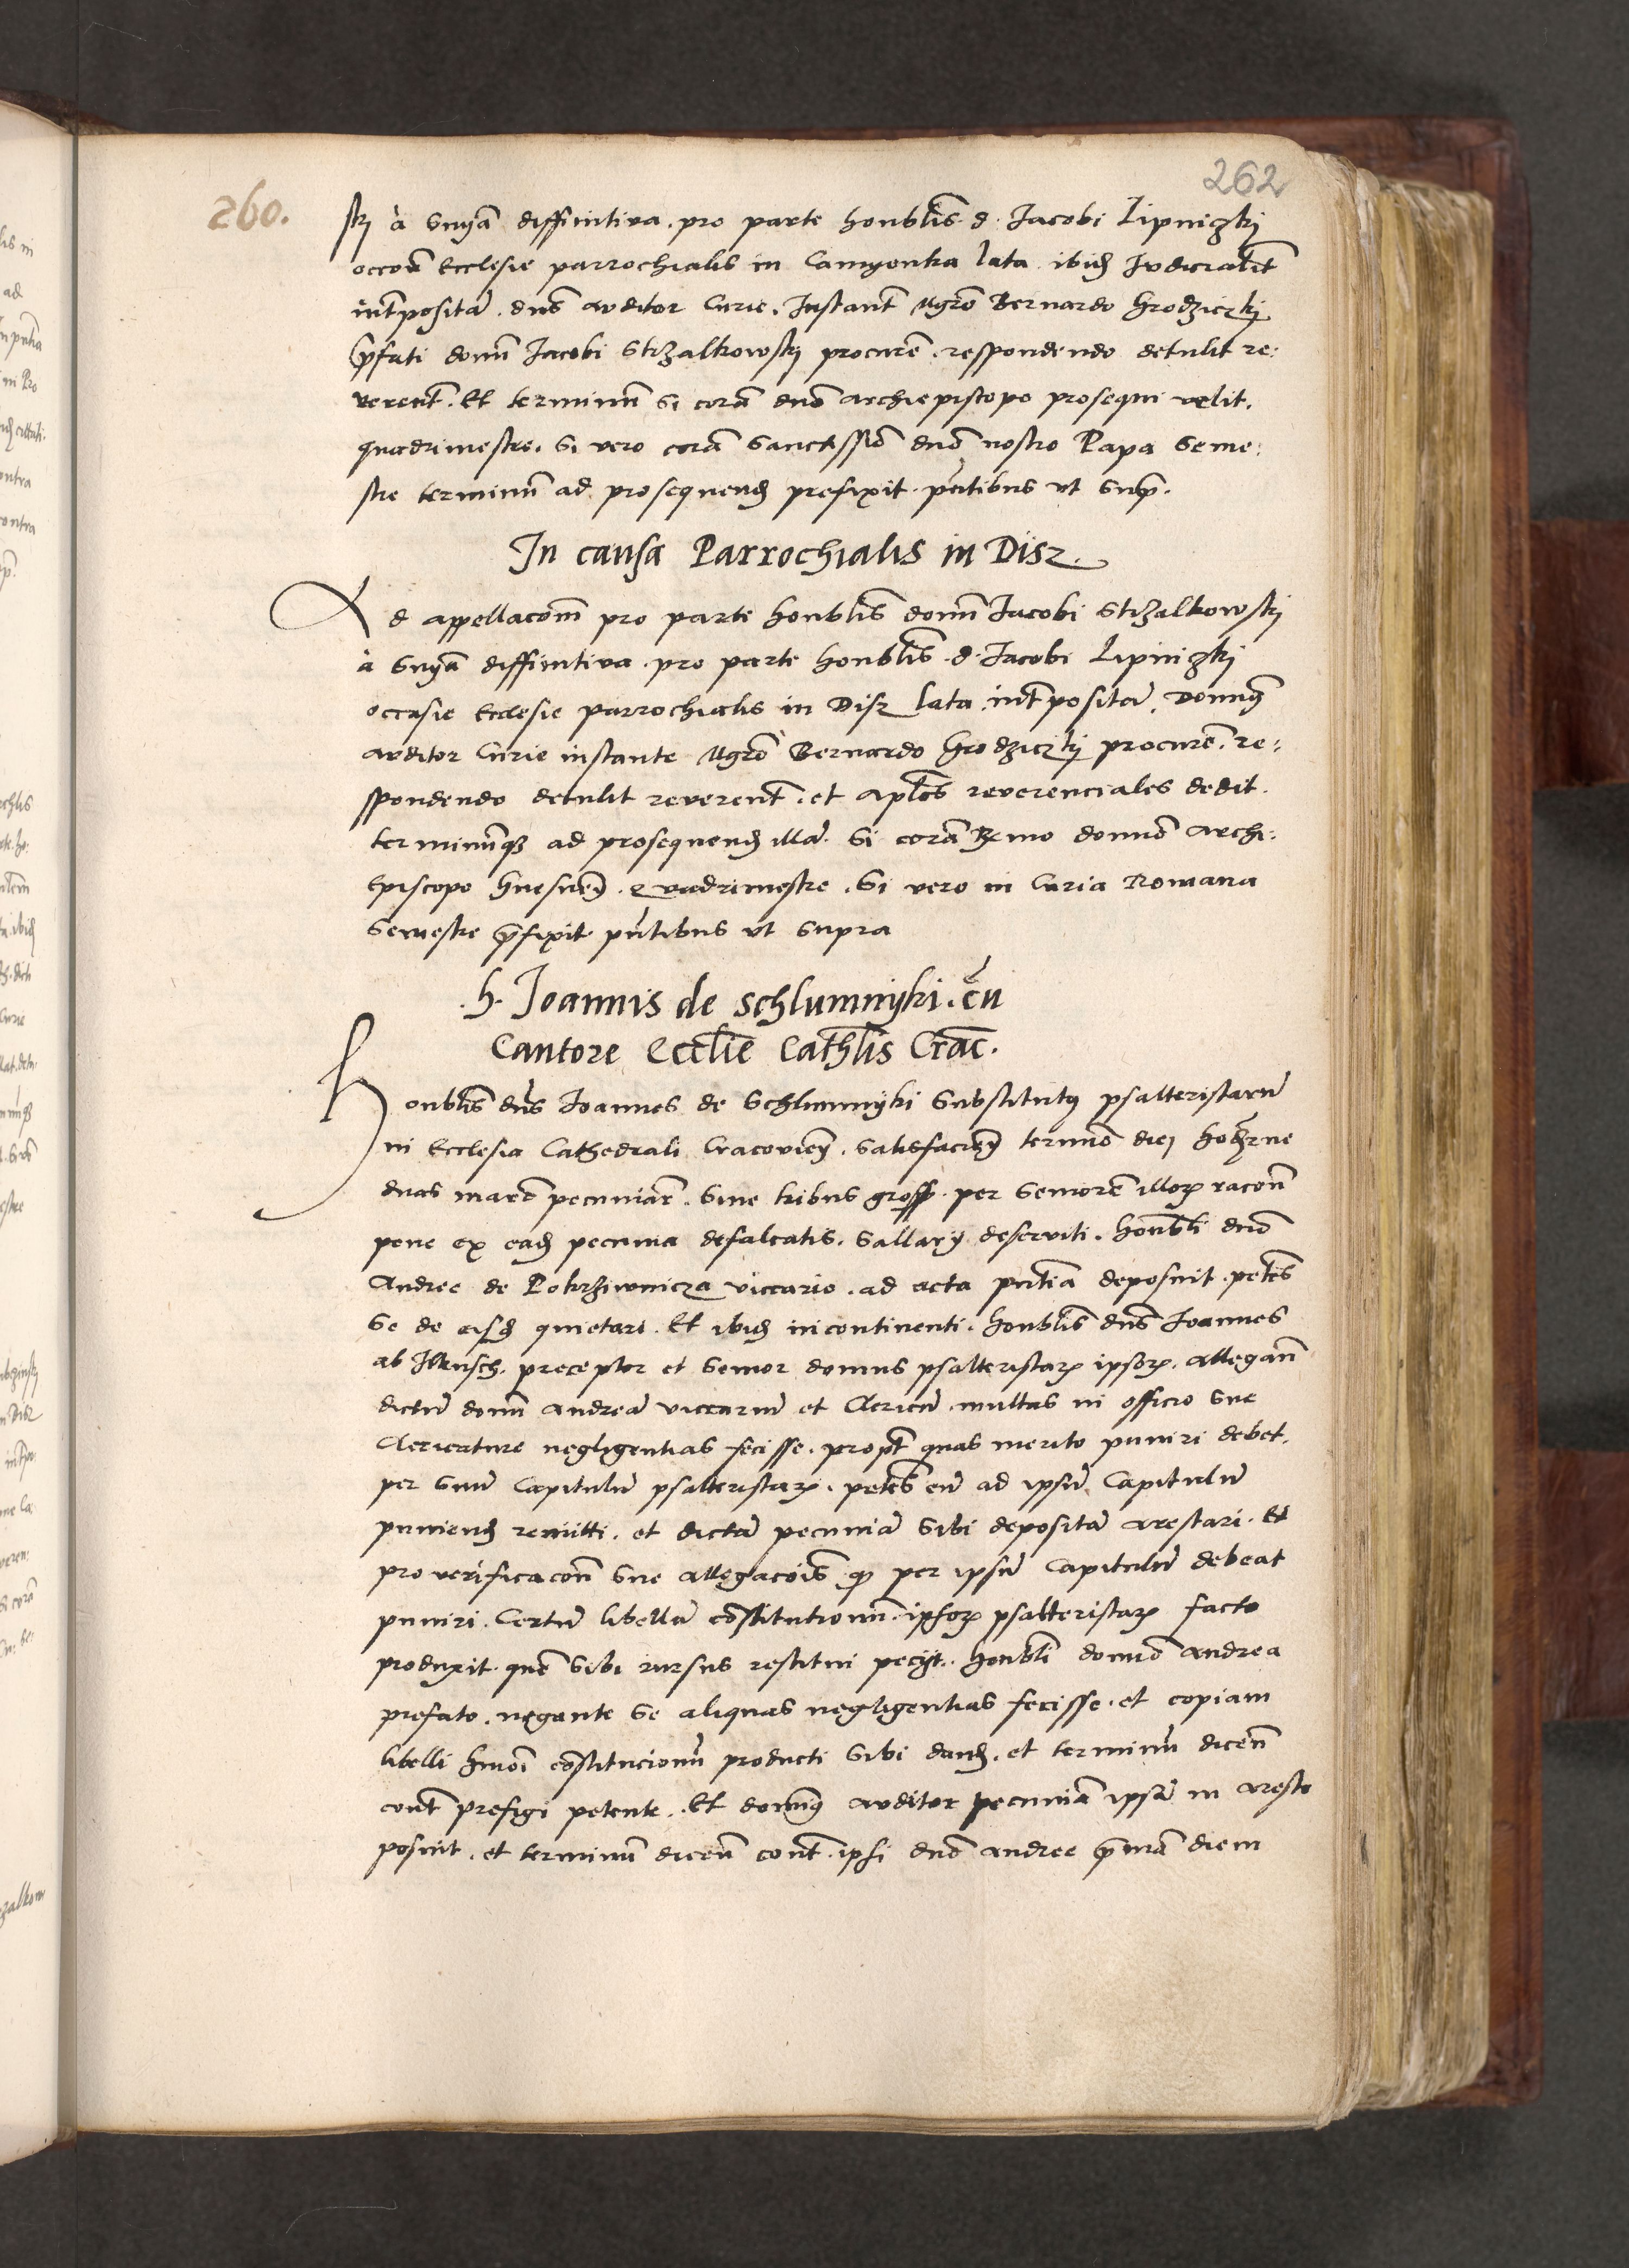 262
260.
ski à snỹa diffinitiva . pro parte honblis d. Jacobi Lipniczki
occoñ Ecclesie parrochialis in Camyonka lata . ibid Judicialit
intposita . dns auditor Curie . Instant Mgro Bernardo Grodziczki
pfati domi Jacobi Strzalkowski procure . respondendo detulit re:
verent . Et terminu si cora dno archiepiscopo prosequi velit .
quadrimestre . Si vero cora Sanctissio dno nostro Papa Seme:
stre terminu ad prosequend prefixit . pntibus ut sup .
In causa Parrochialis in Disz .
Ad appellacom pro parte honblis domi Jacobi Strzalkowski
à snỹa diffinitiva . pro parte honblis . d. Jacobi Lipniczki
occasie Ecclesie parrochialis in Disz lata . intposita . Domins
auditor Curie instante Mgro Bernardo Grodziczki procure . re:
spondendo detulit reverent . et aplos reverenciales dedit .
terminuq ad prosequend illa . Si cora Rmo domno Archi:
Episcopo Gnesnen . Quadrimestre . Si vero in Curia Romana
Semestre pfixit pntibus ut supra
h. Joannis de Schlumnyki . cu
Cantore Ecclie Cathlis Crac .
Honblis dns Joannes de Schlumnyki Substitutus psalteristaru
in Ecclesia Cathedrali Cracovien . satisfacien termio diei hodierne
duas marc pecuniar . sine tribus gross . per Seniore illor racon
pene ex ead pecunia defalcatis . Sallarÿ deserviti . honbli dno
Andree de Pokrziwnicza viccario . ad acta pntia deposuit . petens
Se de eisd quietari . Et ibid incontinenti . honblis dns Joannes
ab Ilkusch . preceptor et Senior domus psalteristar ipsor . allegan
dictu domi Andrea viccariu et Clericu multas in officio sue
Clericature negligentias fecisse . propt quas merito puniri debet .
per suu Capitulu psalteristar . petens eu ad ipsu Capitulu
puniend remitti . et dicta pecunia sibi deposita arestari . Et
pro verificacon sue allegacois qd per ipsu Capitulu debeat
puniri . Certu libellu costitutionu ipsor psalteristar facto
produxit . que sibi rursus restitui pecÿt . honbli domno Andrea
prefato . negante se aliquas negligentias fecisse . et copiam
libelli hmoi costitucionu producti sibi dand . et terminu dicen
cont prefigi petente . Et domins auditor pecunia ipsa in aresto
posuit . et terminu dicen cont . ipsi dno Andree pma diem